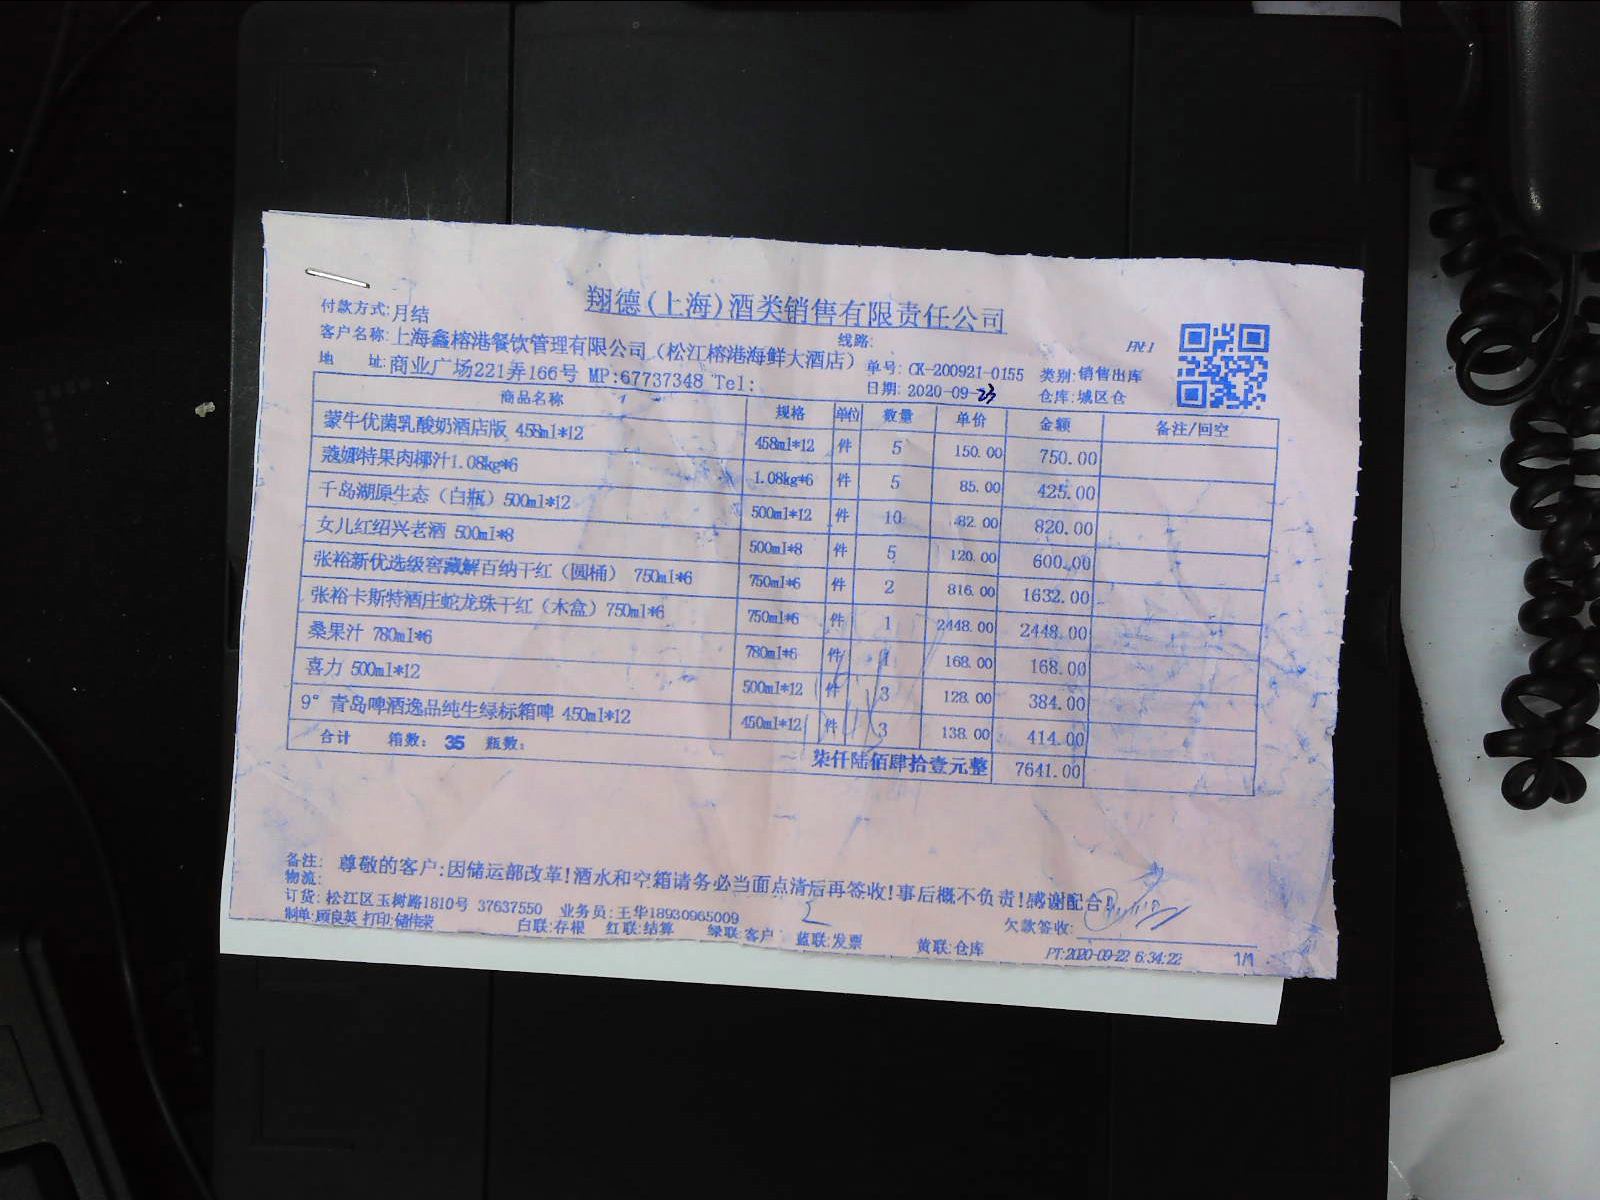 翔德(上海)酒类销售有限责任公司
付款方式:月结
线路:
PN:1
客户名称:上海鑫榕港餐饮管理有限公司（松江榕港海鲜大酒店） 单号: CK-200921-0155 类别:销售出库
地 址:商业广场221弄166号 MP:67737348 Tel: 日期: 2020-09-23 仓库:城区仓
商品名称 规格 单位 数量 单价 金额 备注/回空
蒙牛优菌乳酸奶酒店版 458ml*12 458ml*12 件 5 150.00 750.00
蔻娜特果肉椰汁1.08kg*6 1.08kg*6 件 5 85.00 425.00
千岛湖原生态（白瓶）500ml*12 500ml*12 件 10 82.00 820.00
女儿红绍兴老酒 500ml*8 500ml*8 件 5 120.00 600.00
张裕新优选级窖藏解百纳干红（圆桶） 750ml*6 750ml*6 件 2 816.00 1632.00
张裕卡斯特酒庄蛇龙珠干红（木盒）750ml*6 750ml*6 件 1 2448.00 2448.00
桑果汁 780ml*6 780ml*6 件 1 168.00 168.00
喜力 500ml*12 500ml*12 件 3 128.00 384.00
9° 青岛啤酒逸品纯生绿标箱啤 450ml*12 450ml*12 件 3 138.00 414.00
合计 箱数: 35 瓶数: 柒仟陆佰肆拾壹元整 7641.00
备注: 尊敬的客户:因储运部改革!酒水和空箱请务必当面点清后再签收!事后概不负责!感谢配合!
物流:
订货: 松江区玉树路1810号 37637550 业务员:王华18930965009 欠款签收:
制单:顾良英 打印:储伟荣 白联:存根 红联:结算 绿联:客户 蓝联:发票 黄联:仓库 PT:2020-09-22 6:34:22 1/1